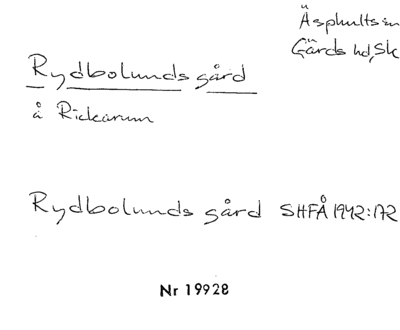 Äsphults sn
Gärds hd, Sk
Rydbolunds gård
å Rickarum
Rydbolunds gård SHFÅ 1942:172
Nr 19928